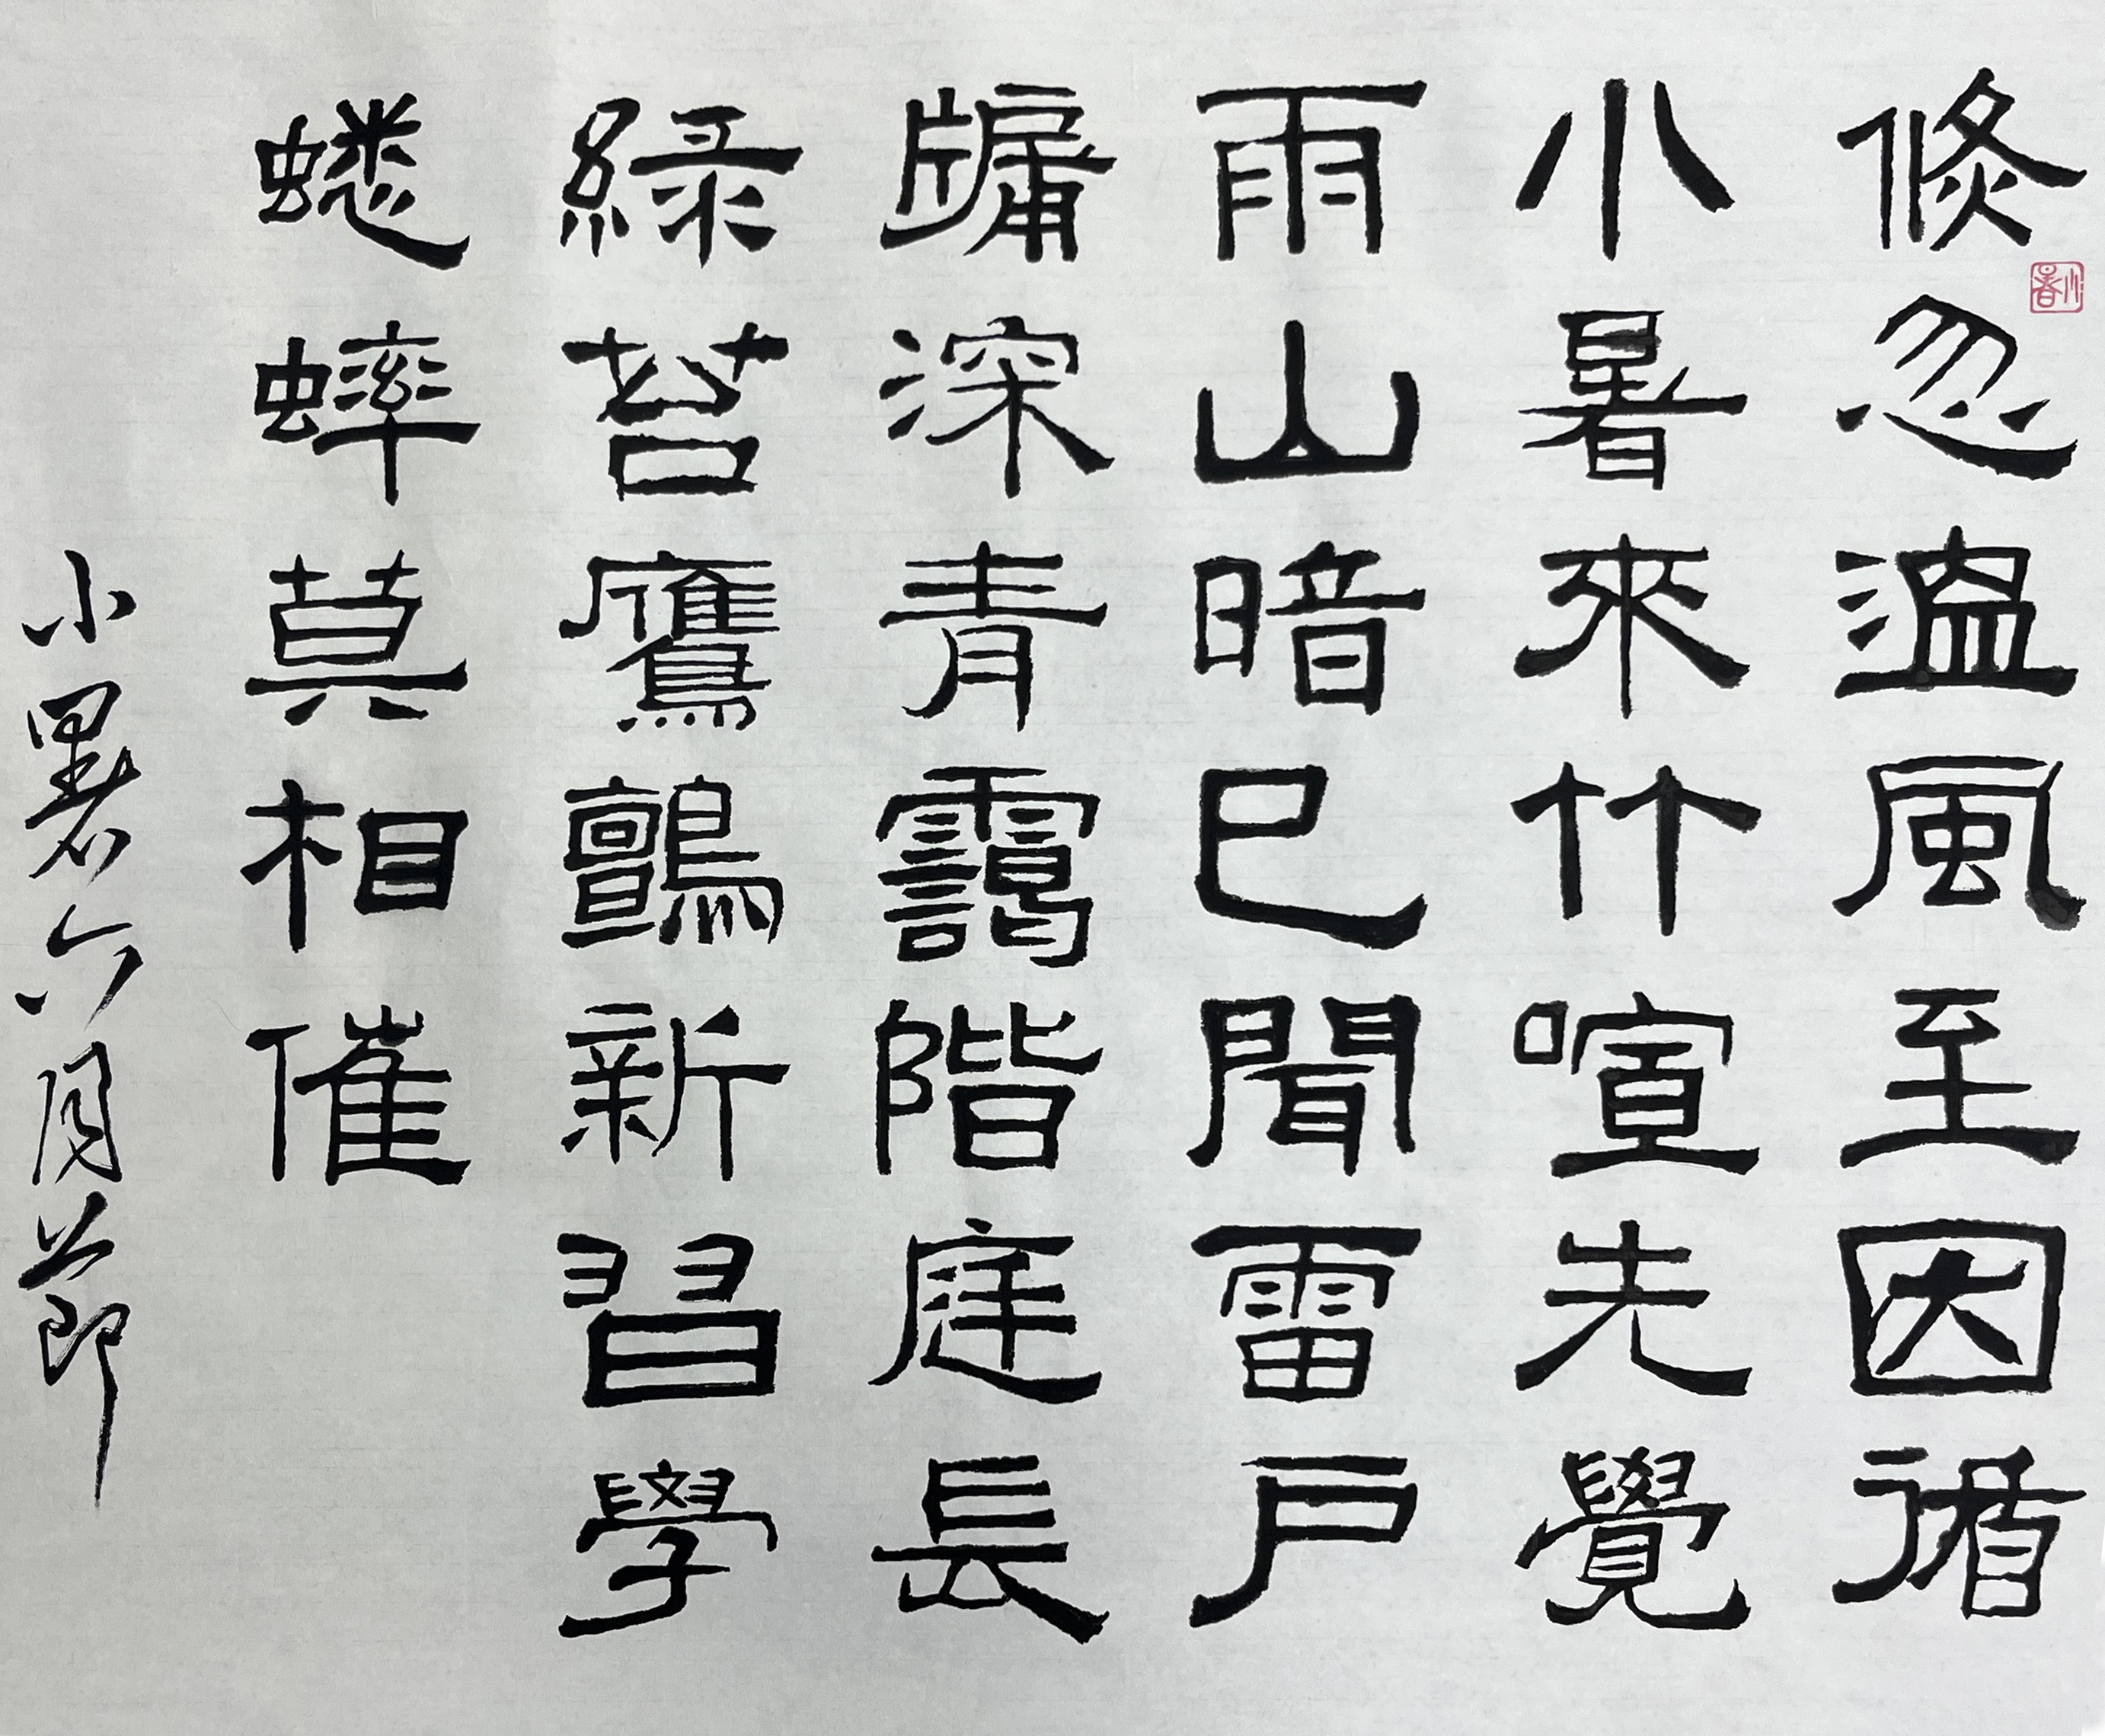 倐忽溫風至因循
小暑
小暑來竹喧先覺
雨山暗已聞雷戶
牖深青靄階庭長
綠苔鷹鸇新習學
蟋蟀莫相催
小暑六月節